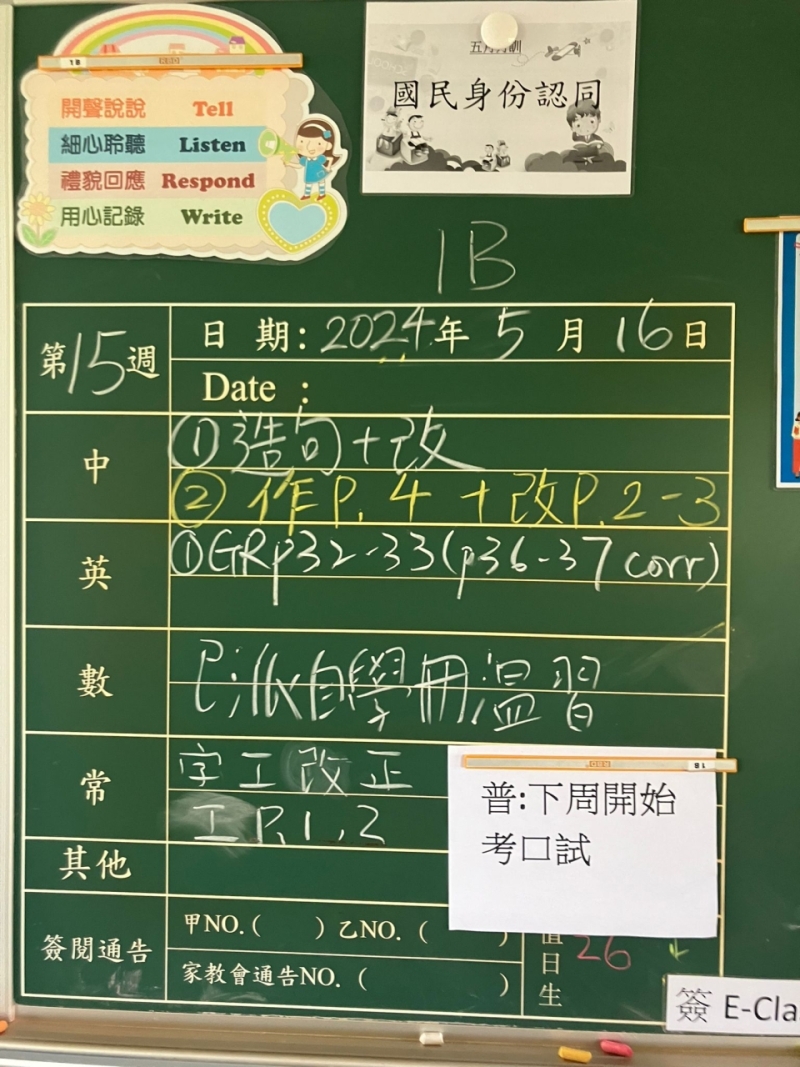 開聲說說 Tell
細心聆聽 Listen
禮貌回應 Respond
用心記錄 Write
五月月訓
國民身份認同
1B
第15週
日 期: 2024年 5 月 16日
Date :
中
①造句+改
② 作P. 4 +改P. 2-3
英
①GRp32-33(p36-37 corr)
數
已派自學冊溫習
常
字工改正
工P.1,2
普:下周開始
考口試
其他
簽閱通告
甲NO.( )乙NO. ( )
家教會通告NO. ( )
值日生 26
簽 E-Cla
1B
1B